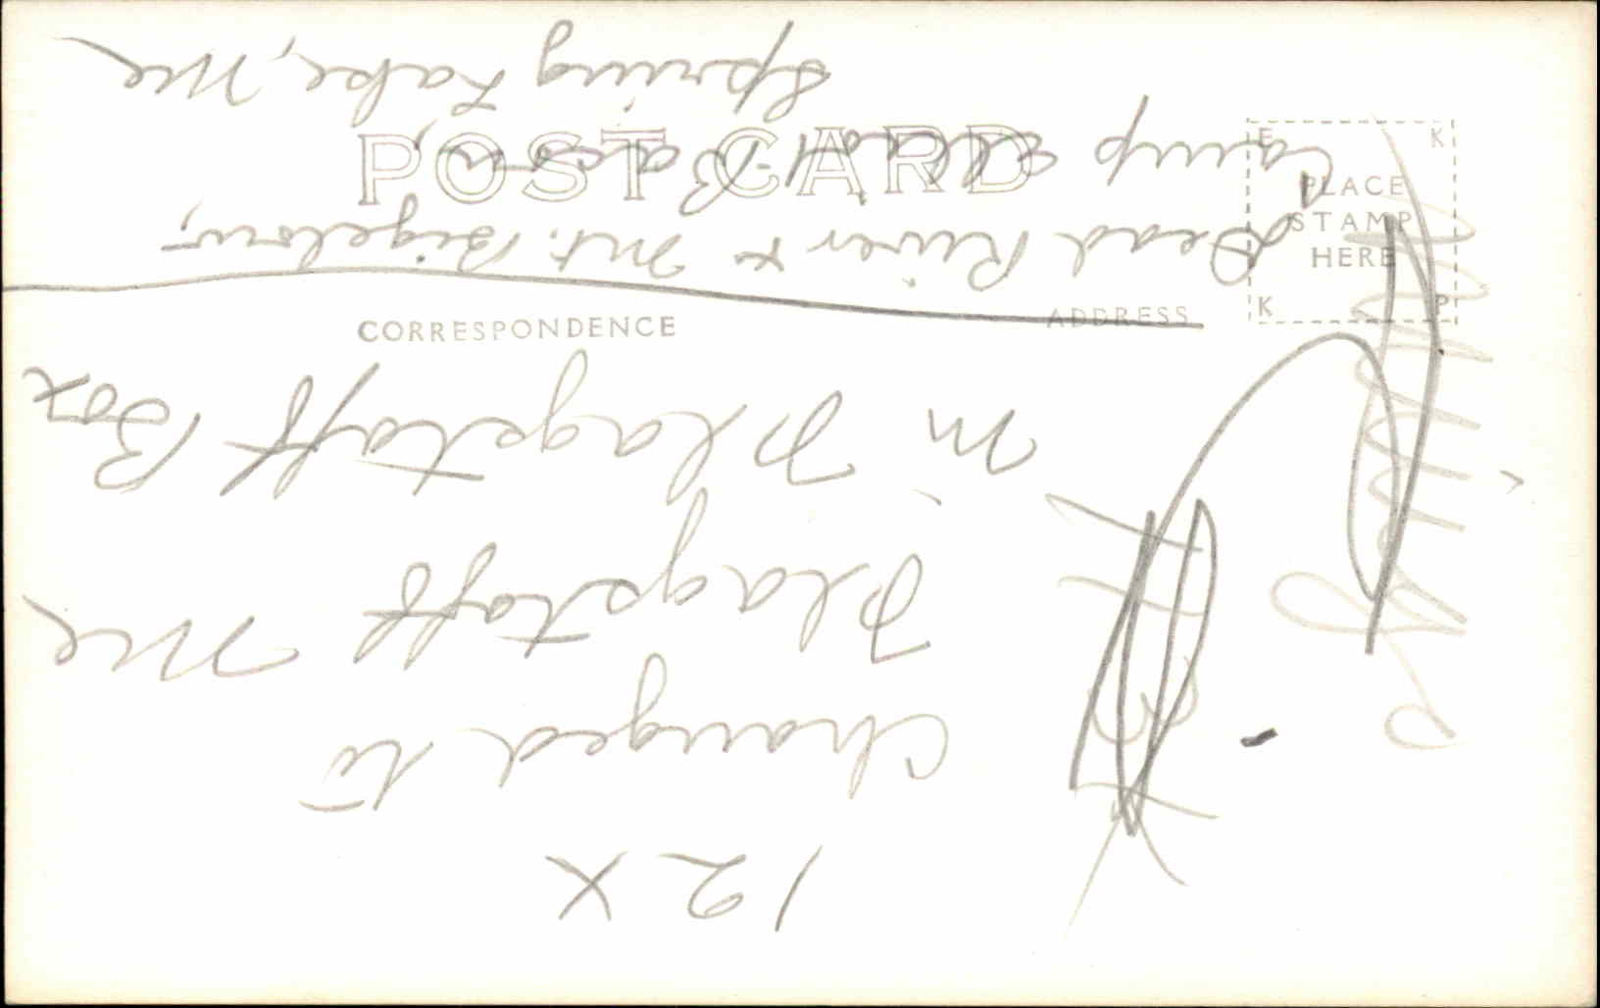 POST CARD
CORRESPONDENCE
ADDRESS
E K
PLACE
STAMP
HERE
K P
12X
Changed to
Flagstaff Me
in Flagstaff Box
Dead River & Mt. Bigelow,
Camp
Spring Lake, Me